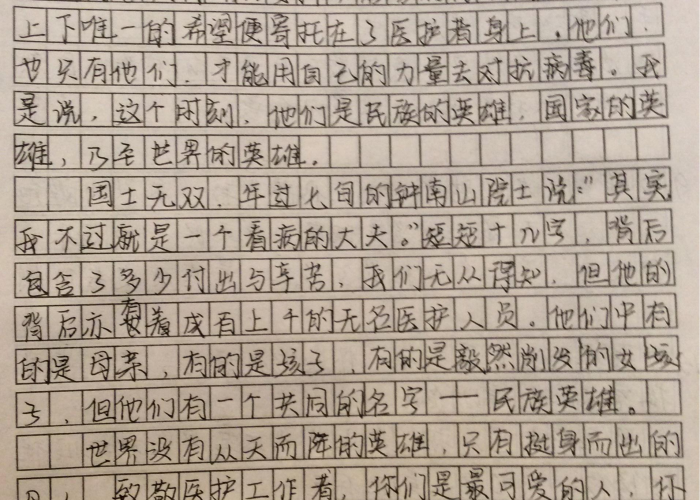 上下唯一的希望便寄托在了医护者身上。他们，
也只有他们，才能用自己的力量去对抗病毒。我
是说，这个时刻，他们是民族的英雄，国家的英
雄，乃至世界的英雄。
国士无双，年过七旬的钟南山院士说："其实
我不过就是一个看病的大夫。"短短十几字，背后
包含了多少付出与辛苦，我们无从得知，但他的
背后亦有着成百上千的无名医护人员。他们中有
的是母亲，有的是孩子，有的是毅然削发的女孩
子，但他们有一个共同的名字——民族英雄。
世界没有从天而降的英雄，只有挺身而出的
致敬医护工作者，你们是最可爱的人，